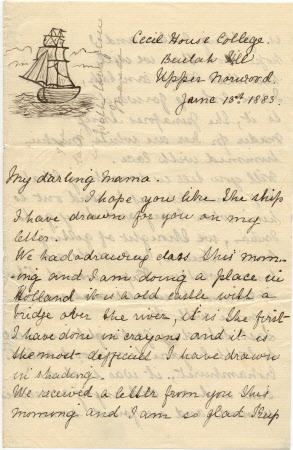 Cecil House College
Beulah Hill
Upper Norwood.
June 13th 1883.
My darling Mama.
I hope you like the ship
I have drawn for you on my
letter.
We had a drawing class this morn-
ing and I am doing a place in
Holland it is a old castle with a
bridge over the river, it is the first
I have done in crayons and it is
the most difficult I have drawn
in shading.
We received a letter from you this
morning and I am so glad